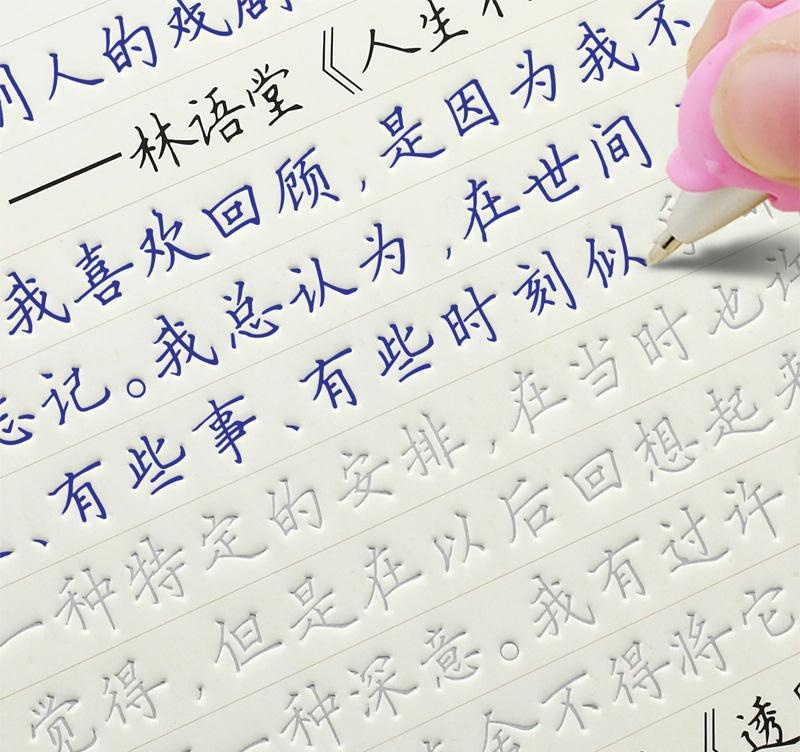 别人的戏剧
——林语堂《人生不
我喜欢回顾,是因为我不
忘记。我总认为,在世间
、有些事、有些时刻似乎
一种特定的安排,在当时也许
觉得,但是在以后回想起来
一种深意。我有过许
舍不得将它
《透